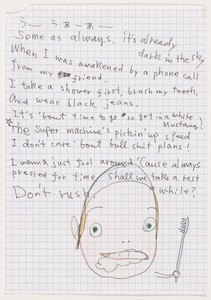 う゛ー うぁーあー
Some as always. it's already
dark in the sky
When I was awakened by a phone call
from my friend.
I take a shower first, brush my teeth,
And wear black jeans.
It's 'bout time to go so get in a white
Mustang!
The Super machine's pickin' up speed
I don't care 'bout bull shit plans!
I wanna just fool around 'Cause always
pressed for time, shall we take a rest
Don't rush. while?